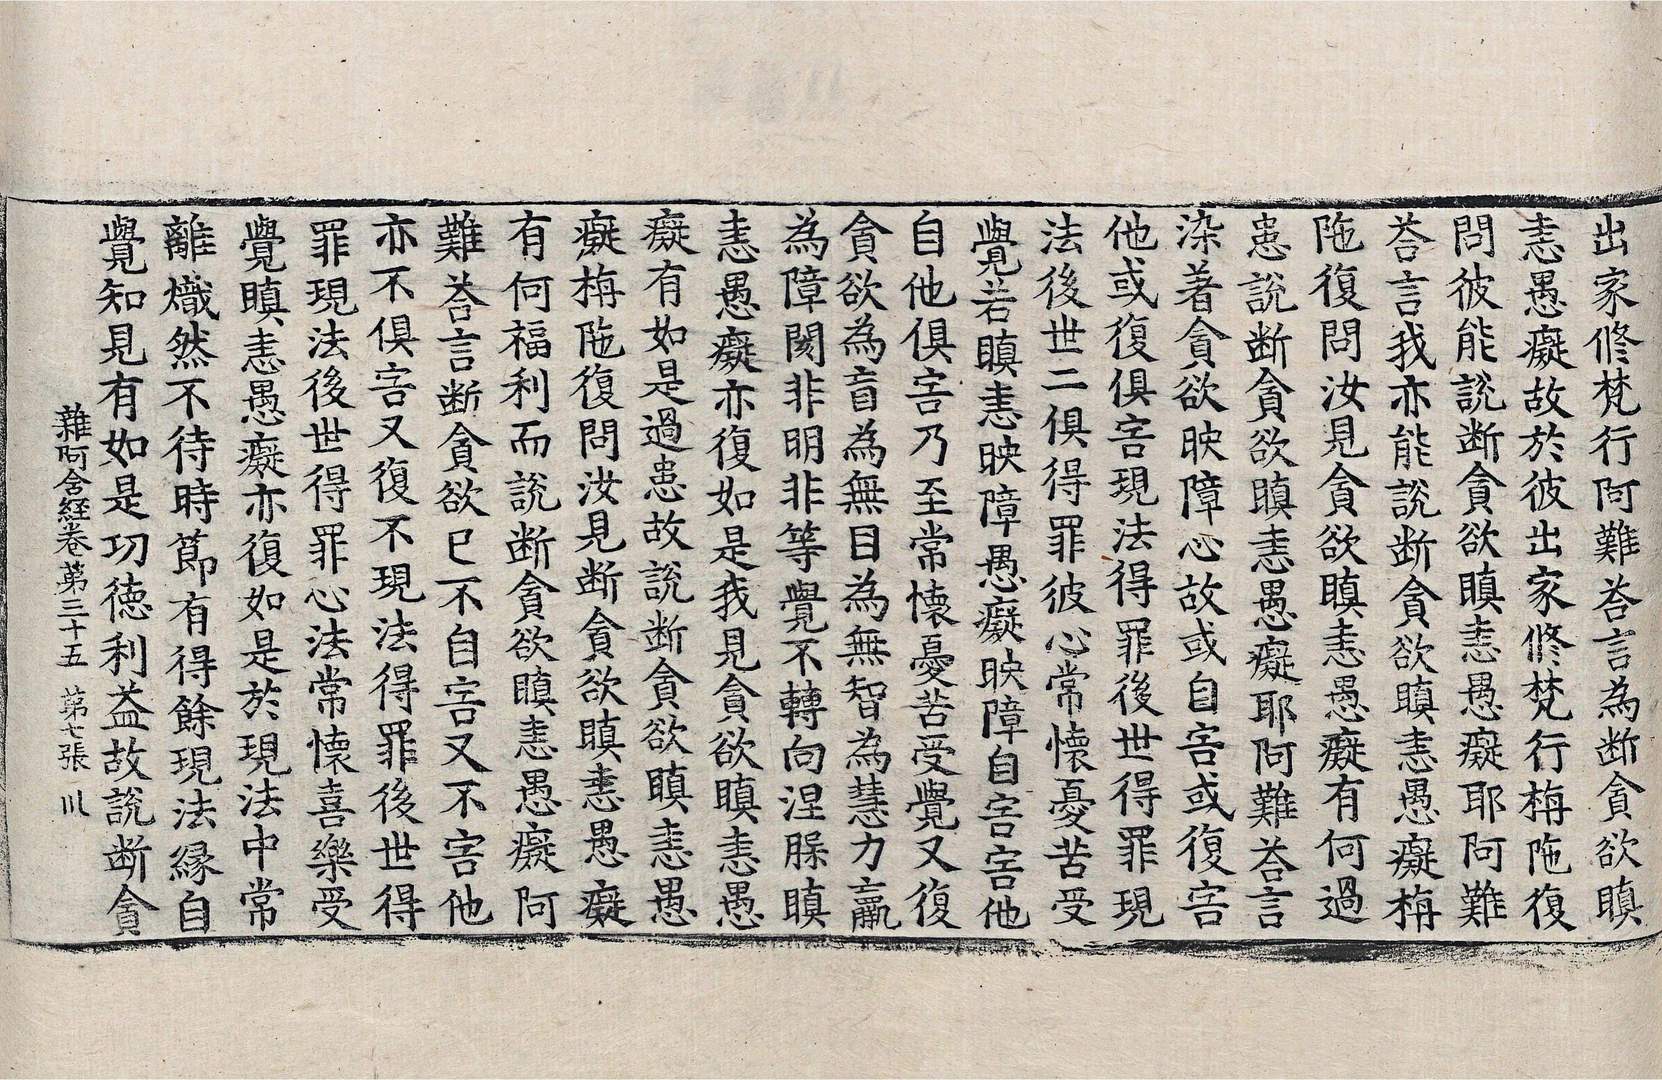 出家修梵行阿難荅言為断貪欲瞋
恚愚癡故於彼出家修梵行栴陁復
問彼能說断貪欲瞋恚愚癡耶阿難
荅言我亦能說断貪欲瞋恚愚癡栴
陁復問汝見貪欲瞋恚愚癡有何過
患說断貪欲瞋恚愚癡耶阿難荅言
染著貪欲映障心故或自害或復害
他或復俱害現法得罪後世得罪現
法後世二俱得罪彼心常懷憂苦受
覺若瞋恚映障愚癡映障自害害他
自他俱害乃至常懷憂苦受覺又復
貪欲為盲為無目為無智為慧力羸
為障閡非明非等覺不轉向涅槃瞋
恚愚癡亦復如是我見貪欲瞋恚愚
癡有如是過患故說断貪欲瞋恚愚
癡栴陁復問汝見断貪欲瞋恚愚癡
有何福利而說断貪欲瞋恚愚癡阿
難荅言断貪欲已不自害又不害他
亦不俱害又復不現法得罪後世得
罪現法後世得罪心法常懷喜樂受
覺瞋恚愚癡亦復如是於現法中常
離熾然不待時節有得餘現法緣自
覺知見有如是功德利益故說断貪
雜阿含経卷第三十五 第七張 川